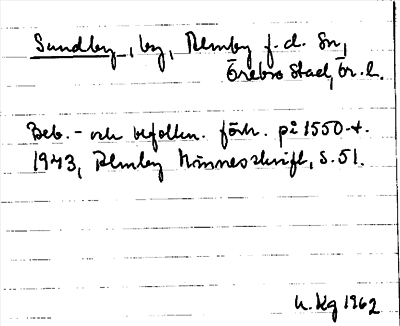 Sundby, by, Almby f.d. sn,
Örebro stad, Ör. l.
Beb.- och befolkn. förh. på 1550-t.
1943, Almby Minnesskrift, s. 51.
1962